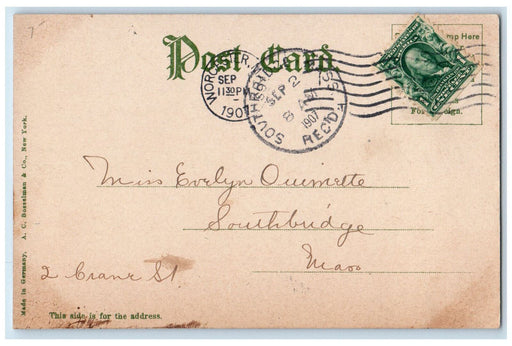 Post Card.
mp Here
For
ign.
WOR
R.
SEP
11 30 PM
1907
SOUTHBRI
SS
SEP 2
8 AM
1907
REC'D
Miss Evelyn Ouimette
Southbridge
Mass
2 Crane St.
This side is for the address.
Made in Germany. A. C. Bosselman & Co., New York.